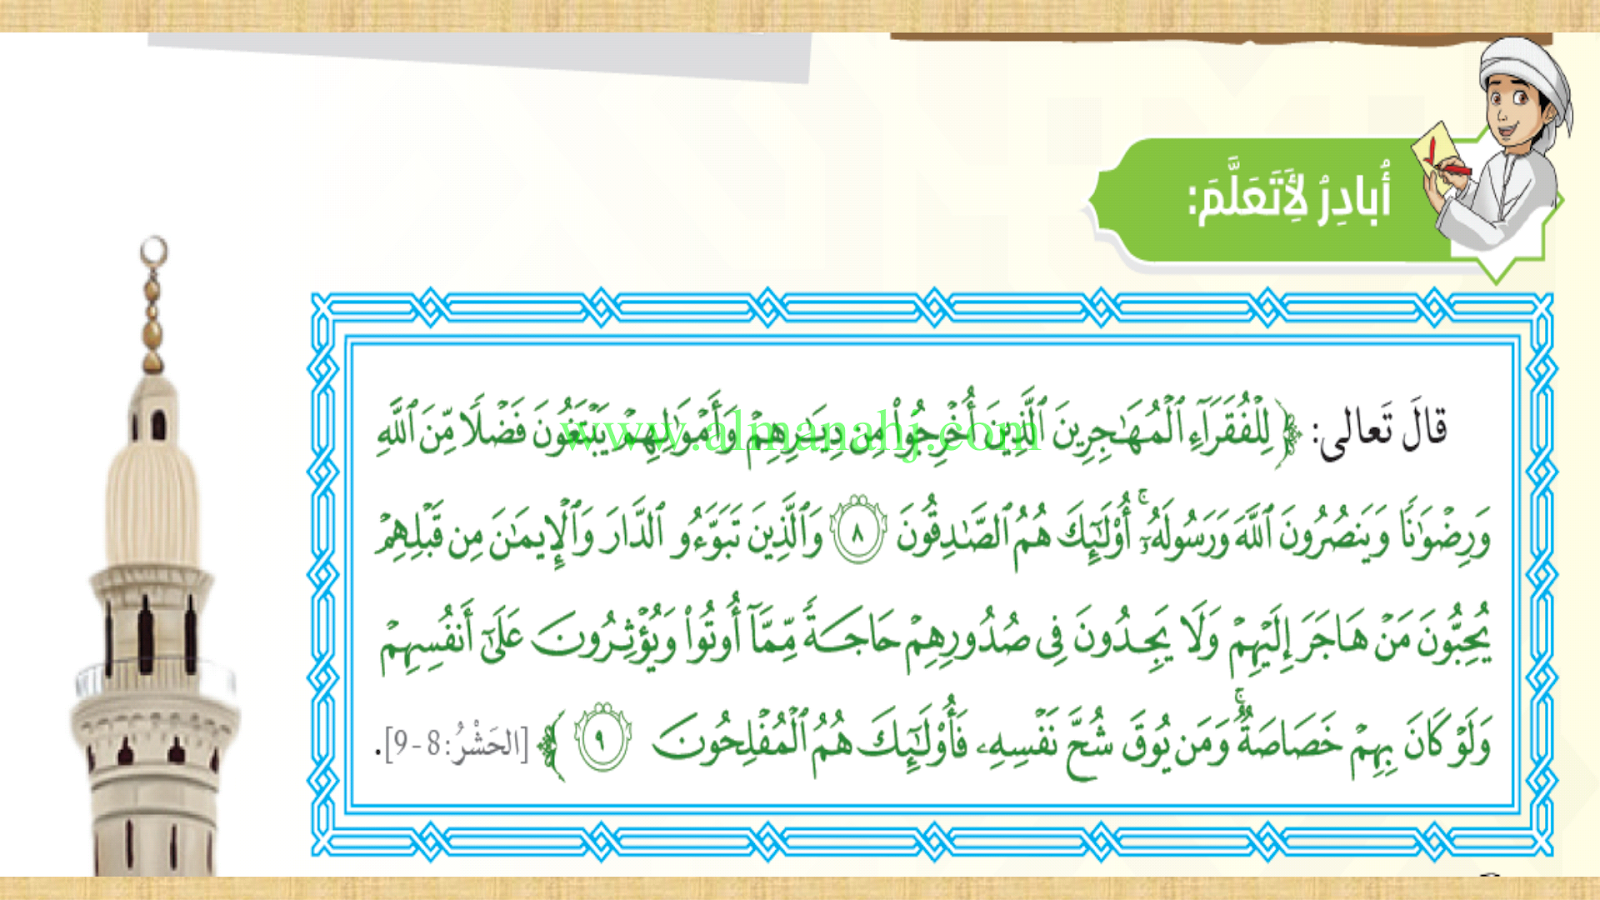 أُبادِرُ لِأَتَعَلَّمَ:
قالَ تَعالى: ﴿ لِلْفُقَرَآءِ ٱلْمُهَٰجِرِينَ ٱلَّذِينَ أُخْرِجُوا۟ مِن دِيَٰرِهِمْ وَأَمْوَٰلِهِمْ يَبْتَغُونَ فَضْلًا مِّنَ ٱللَّهِ
www.almanahj.com
وَرِضْوَٰنًا وَيَنصُرُونَ ٱللَّهَ وَرَسُولَهُۥٓ ۚ أُو۟لَٰٓئِكَ هُمُ ٱلصَّٰدِقُونَ ٨ وَٱلَّذِينَ تَبَوَّءُو ٱلدَّارَ وَٱلْإِيمَٰنَ مِن قَبْلِهِمْ
يُحِبُّونَ مَنْ هَاجَرَ إِلَيْهِمْ وَلَا يَجِدُونَ فِى صُدُورِهِمْ حَاجَةً مِّمَّآ أُوتُوا۟ وَيُؤْثِرُونَ عَلَىٰٓ أَنفُسِهِمْ
وَلَوْ كَانَ بِهِمْ خَصَاصَةٌ ۚ وَمَن يُوقَ شُحَّ نَفْسِهِۦ فَأُو۟لَٰٓئِكَ هُمُ ٱلْمُفْلِحُونَ ٩ ﴾ [الحَشْرُ: 8-9].